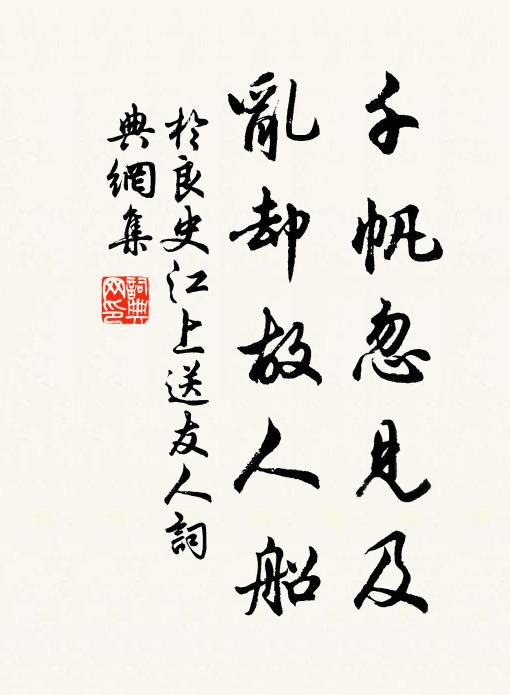 千帆忽見及
亂却故人船
於良史江上送友人詞
典網集
詞典
网印